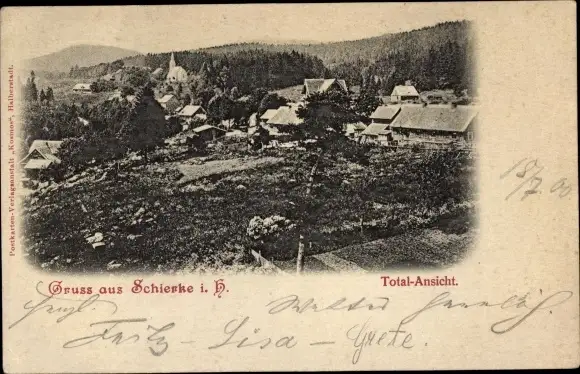 Postkarten-Verlagsanstalt „Kosmos“, Halberstadt.
Gruss aus Schierke i. H.
Total-Ansicht.
18/7 00
Walter
Fritz – Lisa – Grete.